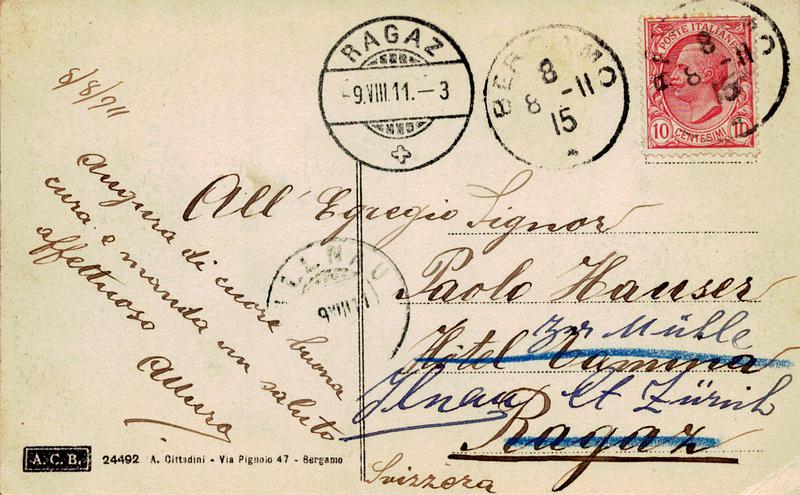 8/8/911
Augura di cuore buona
cura e manda un saluto
affettuoso
RAGAZ
-9.VIII.11.-3
BERGAMO
8
8 -11
15
BERGAMO
8
8 -11
15
POSTE ITALIANE
10 CENTESIMI 10
All' Egregio Signor
Paolo Hauser
zur Mühle
Hôtel Tamina
Ilnau Ct Zürich
Ragaz
Svizzera
ILLNAU
9.VIII.11
A.C.B. 24492 A. Cittadini - Via Pignolo 47 - Bergamo